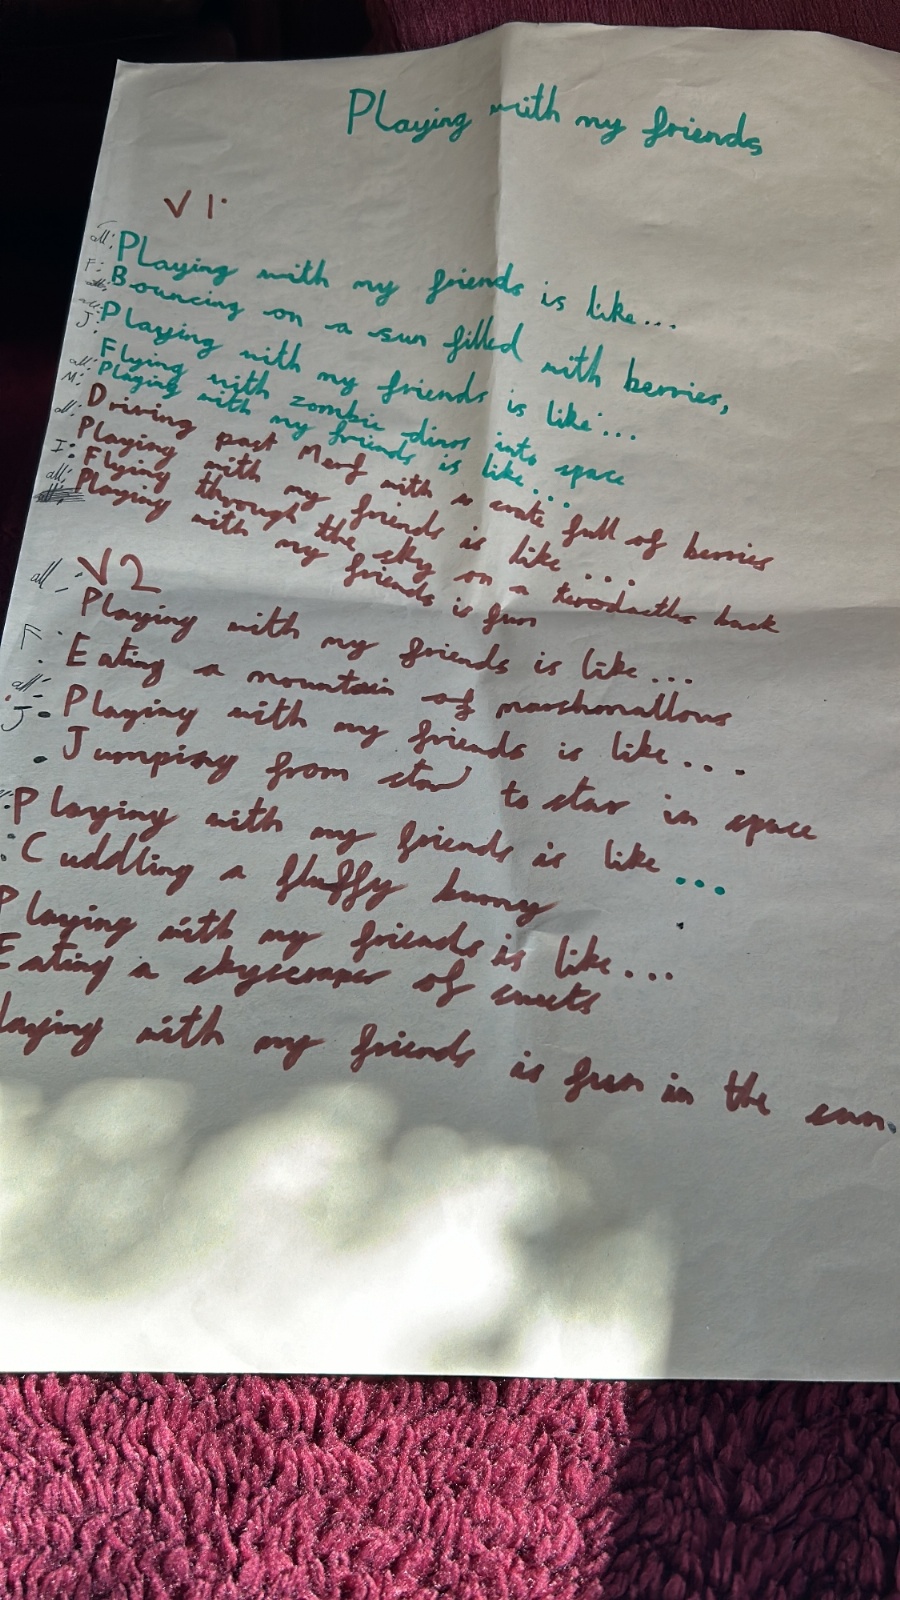 Playing with my friends
V1.
all: Playing with my friends is like...
F: Bouncing on a sun filled with berries,
all: Playing with my friends is like...
J: Flying with zombie dinos into space
all: Playing with my friends is like...
M: Driving past Merf with a crate full of berries
all: Playing with my friends is like...
I: Flying through the sky on a back
all: Playing with my friends is fun
V2
all: Playing with my friends is like...
F: Eating a mountain of marshmallows
all: Playing with my friends is like....
J: Jumping from star to star in space
Playing with my friends is like...
: Cuddling a fluffy bunny
Playing with my friends is like...
Eating a skyscraper of sweets
laying with my friends is fun in the sun.